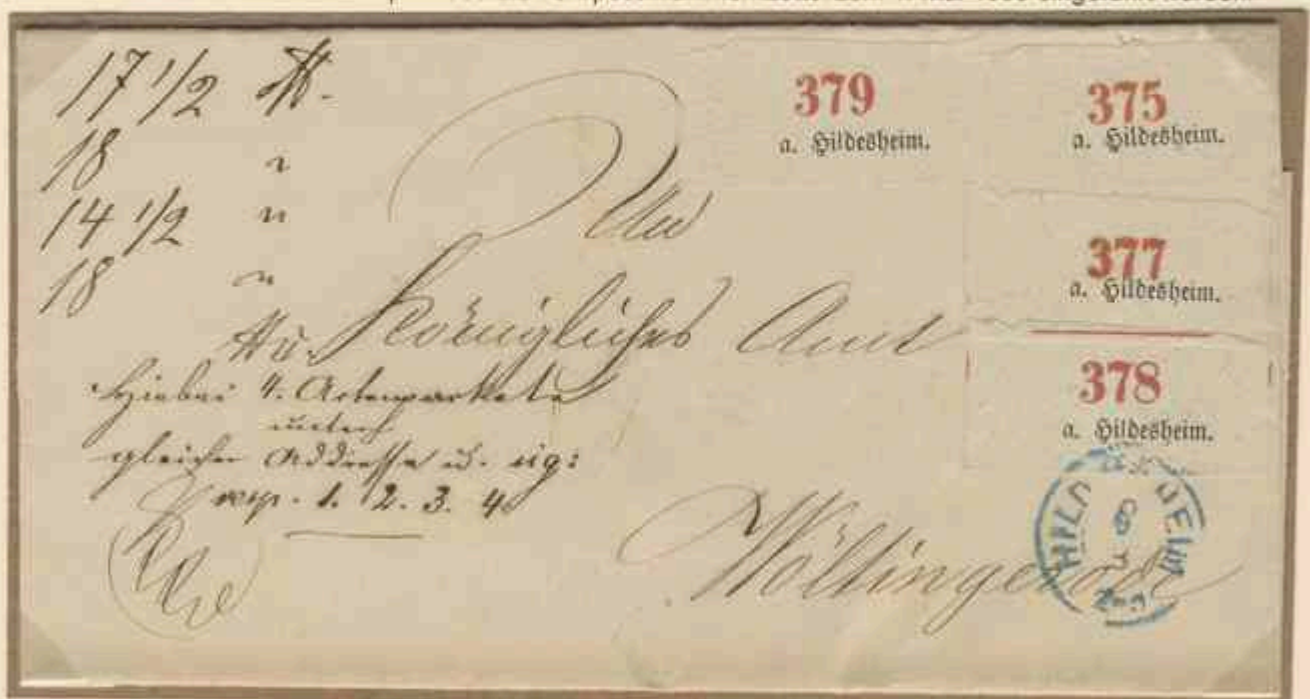 17 1/2 ℔.
18 "
14 1/2 "
18 "
379
a. Hildesheim.
375
a. Hildesheim.
377
a. Hildesheim.
378
a. Hildesheim.
An
Königliches Amt
Hiebei 4. Actenpackete
unter
gleicher Addresse u. sig:
resp. 1. 2. 3. 4.
Wöltingerode